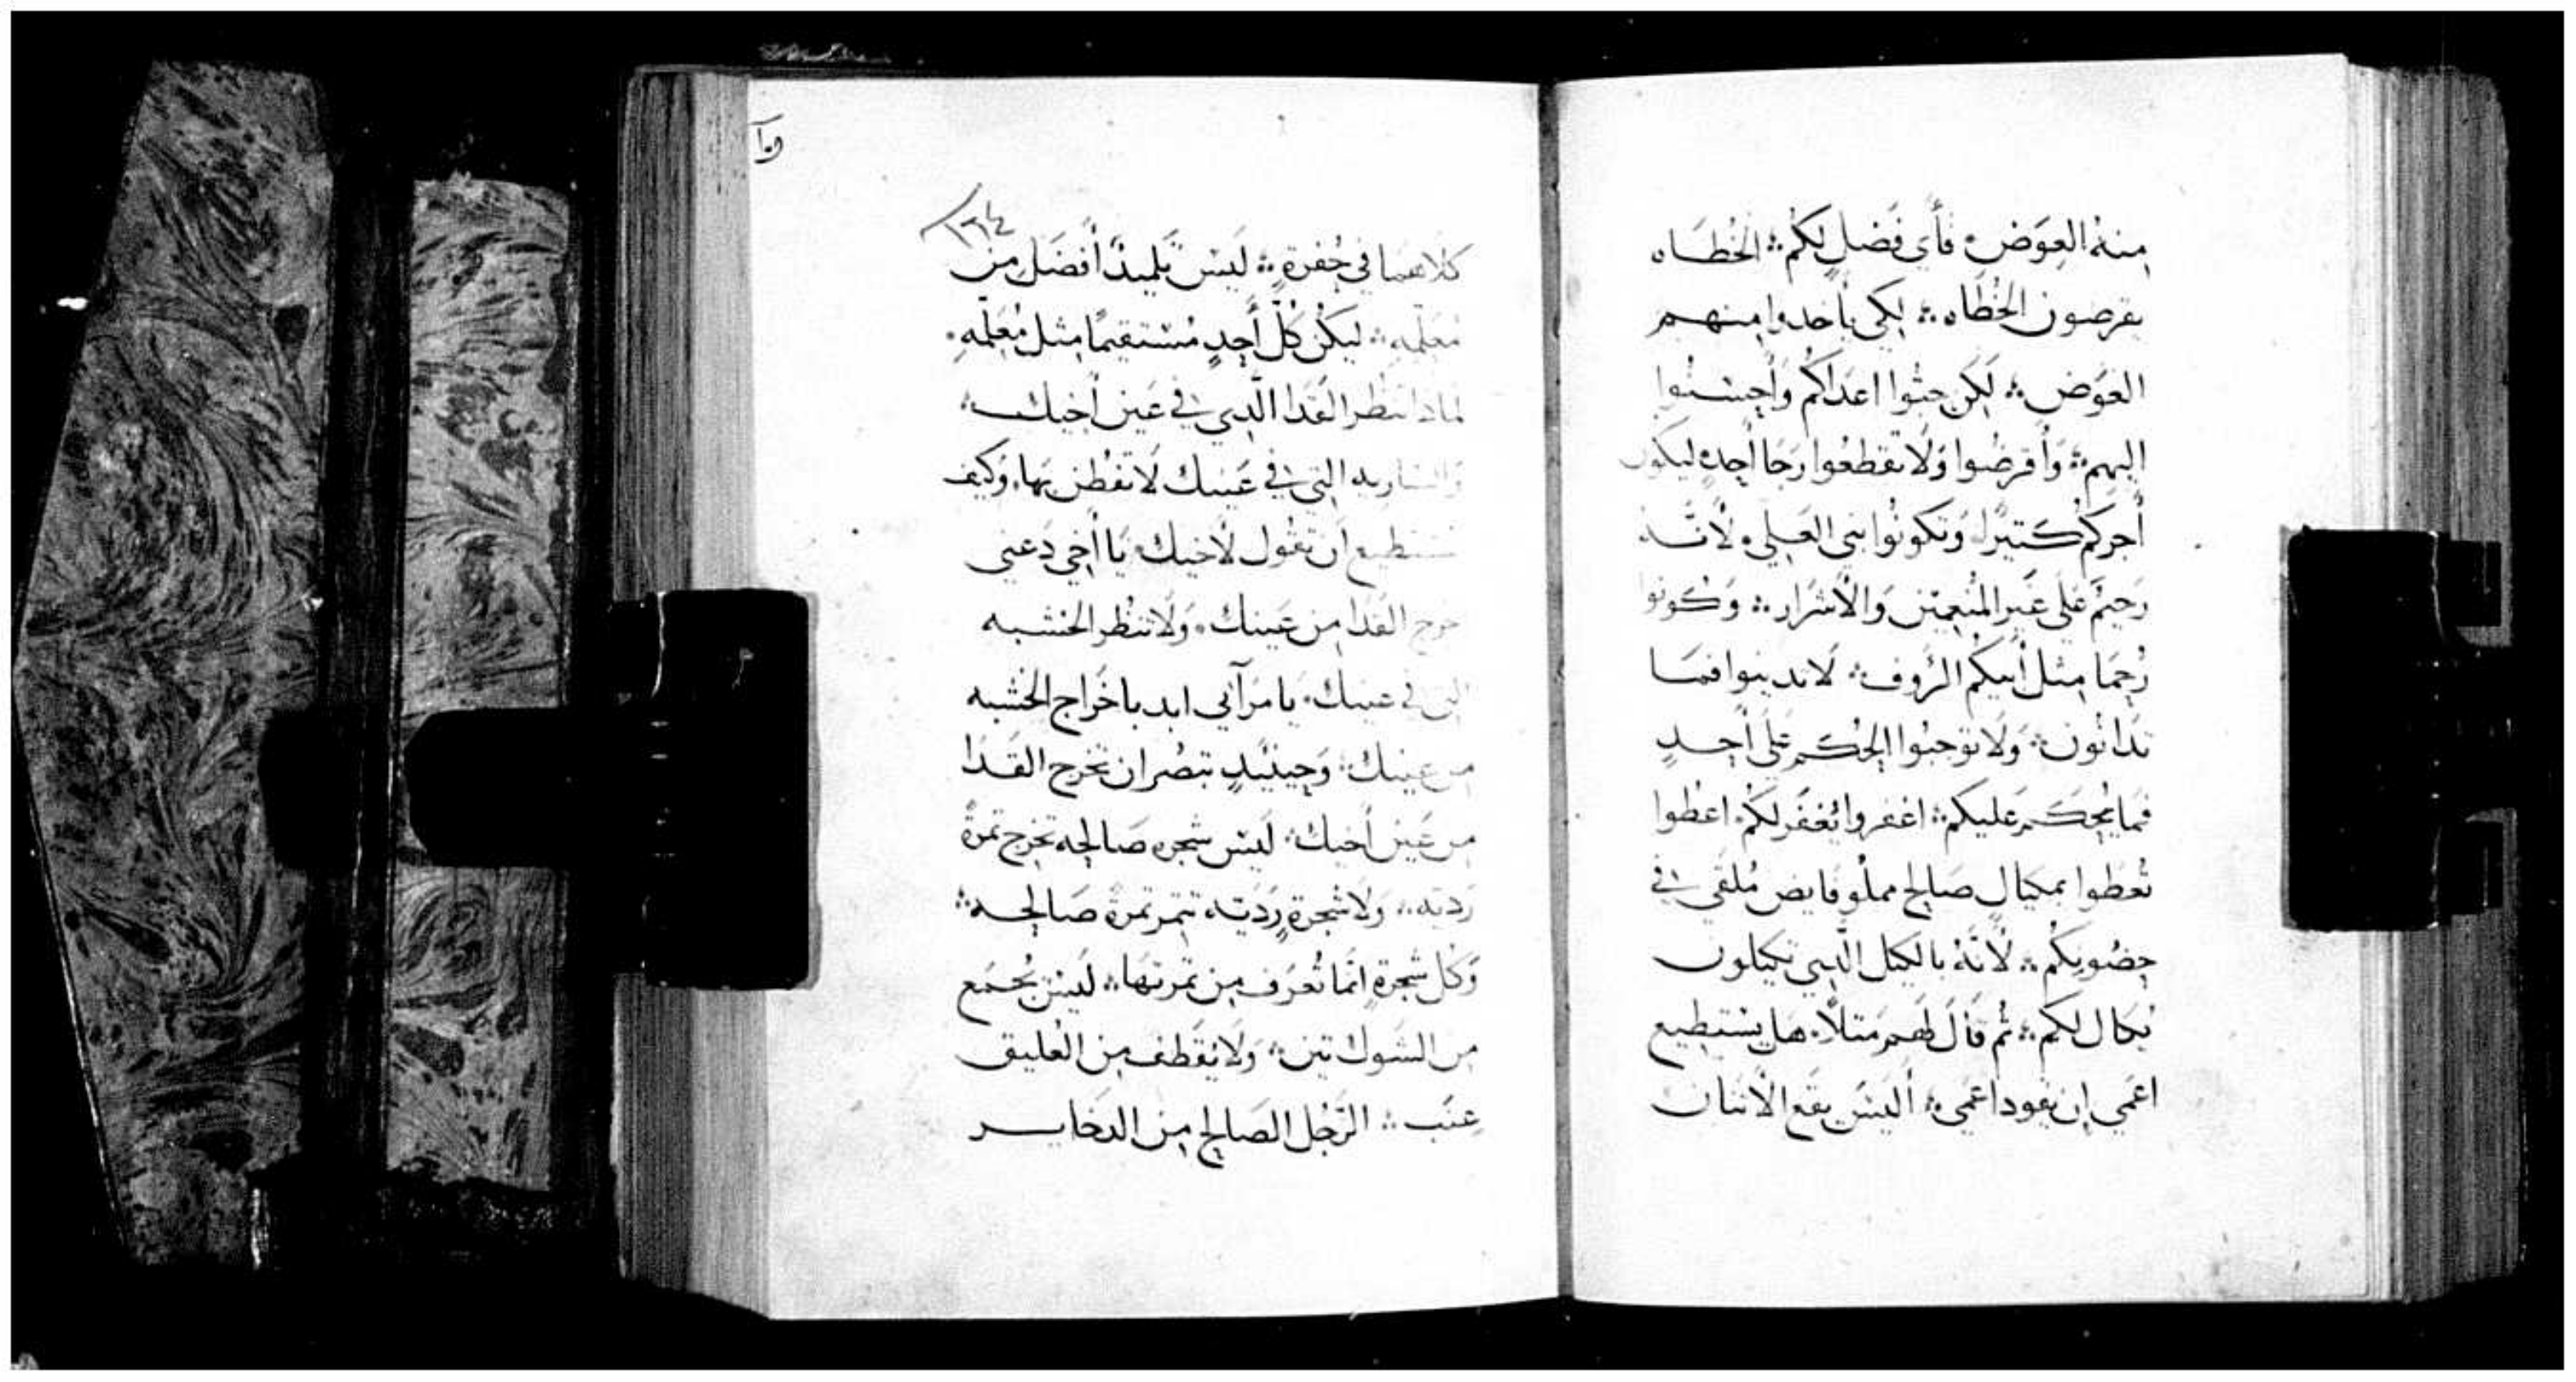 منهُ العِوَض فأي فَضلٍ لكُم الخُطَاه
يقرضون الخُطَاه لكي ياخدوا منهم
العِوَض لكن حبُّوا اعداكُم وَأحسنُوا
اليهم وَأقرضُوا وَلا تقطعُوا رَجا أحدٍ ليكون
أجركُم كثيرًا وَتكونُوا بني العَلي لأنَّه
رَحيم عَلى غَير المُنعمين وَالأشرَار وَكونوا
رُحمَا مثل أبيكُم الرَّوف لا تدينوا فمَا
تدَانُون وَلا توجبُوا الحُكم عَلى أحدٍ
فما يُحكَم عَليكم اغفروا يُغفَر لكُم اعطُوا
تُعطوا بمكيال صَالح مملُو فايض مُلقى في
حضُونِكُم لأنَّهُ بالكيل الَّدي تكيلون
يُكال لكم ثُم قَالَ لهَم مَتلاً هَل يستطيع
اعَمى ان يقود اعَمى أليسَ يقَع الاثنان
وا
١٦٤
كلاهمَا في حُفرةٍ ليسَ تلميدٌ أفضَل من
مُعَلّمه ليكُن كُلّ أحدٍ مُستقيمًا مثل مُعَلّمِهِ
لمادا تنظر القَدا الَّدي في عَين أخيك
وَالسَّاريه التي في عَينك لاَ تَفُطن بهَا وَكيف
تستطيع أن تقُول لأخيك يَا أخي دَعني
اخرج القَدا من عَينك وَلاَ تنظُر الخشبه
التي في عينك يا مرَآئي ابدا باخرَاج الخشبه
من عينك وَحينَيدٍ تبصُر ان تخرج القَدا
من عَين أخيك ليسَ شجره صَالحه تخرج ثمرةً
رَديَه وَلا شجرةٍ رَديَه تتمر ثمرةً صَالحه
وَكُل شجرةٍ انّمَا تُعرَف من ثمرتهَا ليسَ يُجمَع
من الشوك تين وَلا يُقطف من العُليق
عنَب الرَّجُل الصَالح من الدخاير